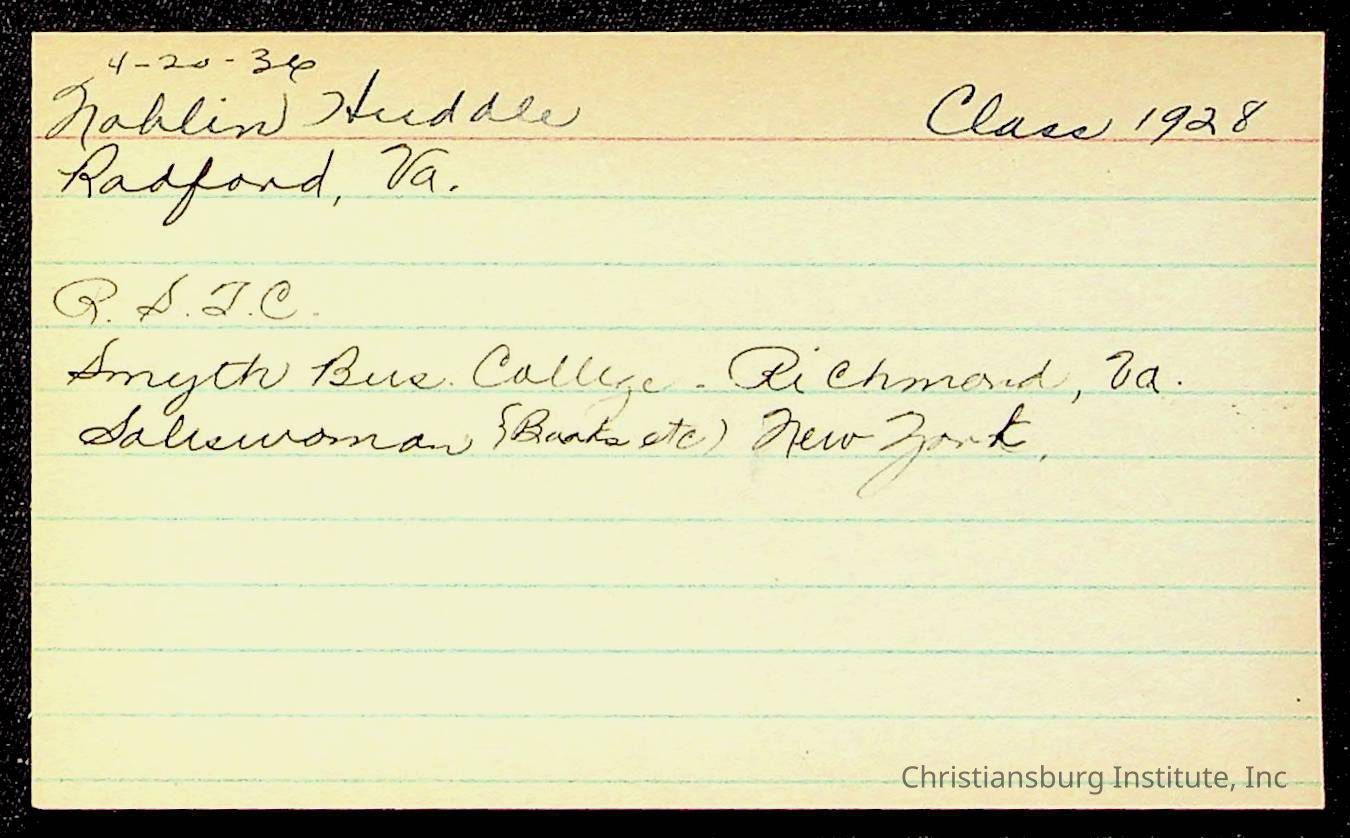 4-20-36
Noblin Huddle Class 1928
Radford, Va.
R.S.T.C.
Smyth Bus. College - Richmond, Va.
Saleswoman (Books etc) New York.
Christiansburg Institute, Inc